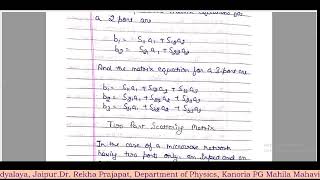 a 2 port are
b₁ = S₁₁ a₁ + S₁₂ a₂
b₂ = S₂₁ a₁ + S₂₂ a₂
And the matrix equation for a 3-port are
b₁ = S₁₁ a₁ + S₁₂ a₂ + S₁₃ a₃
b₂ = S₂₁ a₁ + S₂₂ a₂ + S₂₃ a₃
b₃ = S₃₁ a₁ + S₃₂ a₂ + S₃₃ a₃
Two Port Scattering Matrix
In the case of a microwave network
having two ports only, an input and an
dyalaya, Jaipur.Dr. Rekha Prajapat, Department of Physics, Kanoria PG Mahila Mahavi